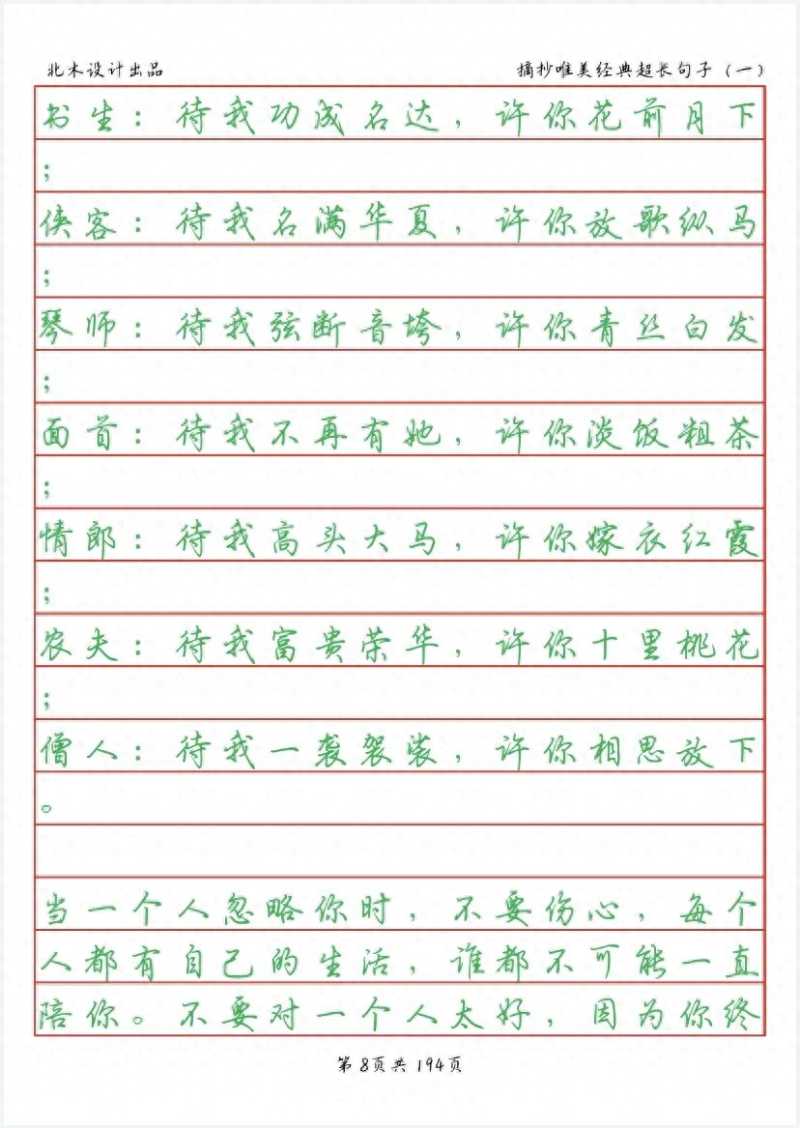 北木设计出品 摘抄唯美经典超长句子（一）
书生：待我功成名达，许你花前月下
；
侠客：待我名满华夏，许你放歌纵马
；
琴师：待我弦断音垮，许你青丝白发
；
面首：待我不再有她，许你淡饭粗茶
；
情郎：待我高头大马，许你嫁衣红霞
；
农夫：待我富贵荣华，许你十里桃花
；
僧人：待我一袭袈裟，许你相思放下
。
当一个人忽略你时，不要伤心，每个
人都有自己的生活，谁都不可能一直
陪你。不要对一个人太好，因为你终
第 8页共 194页